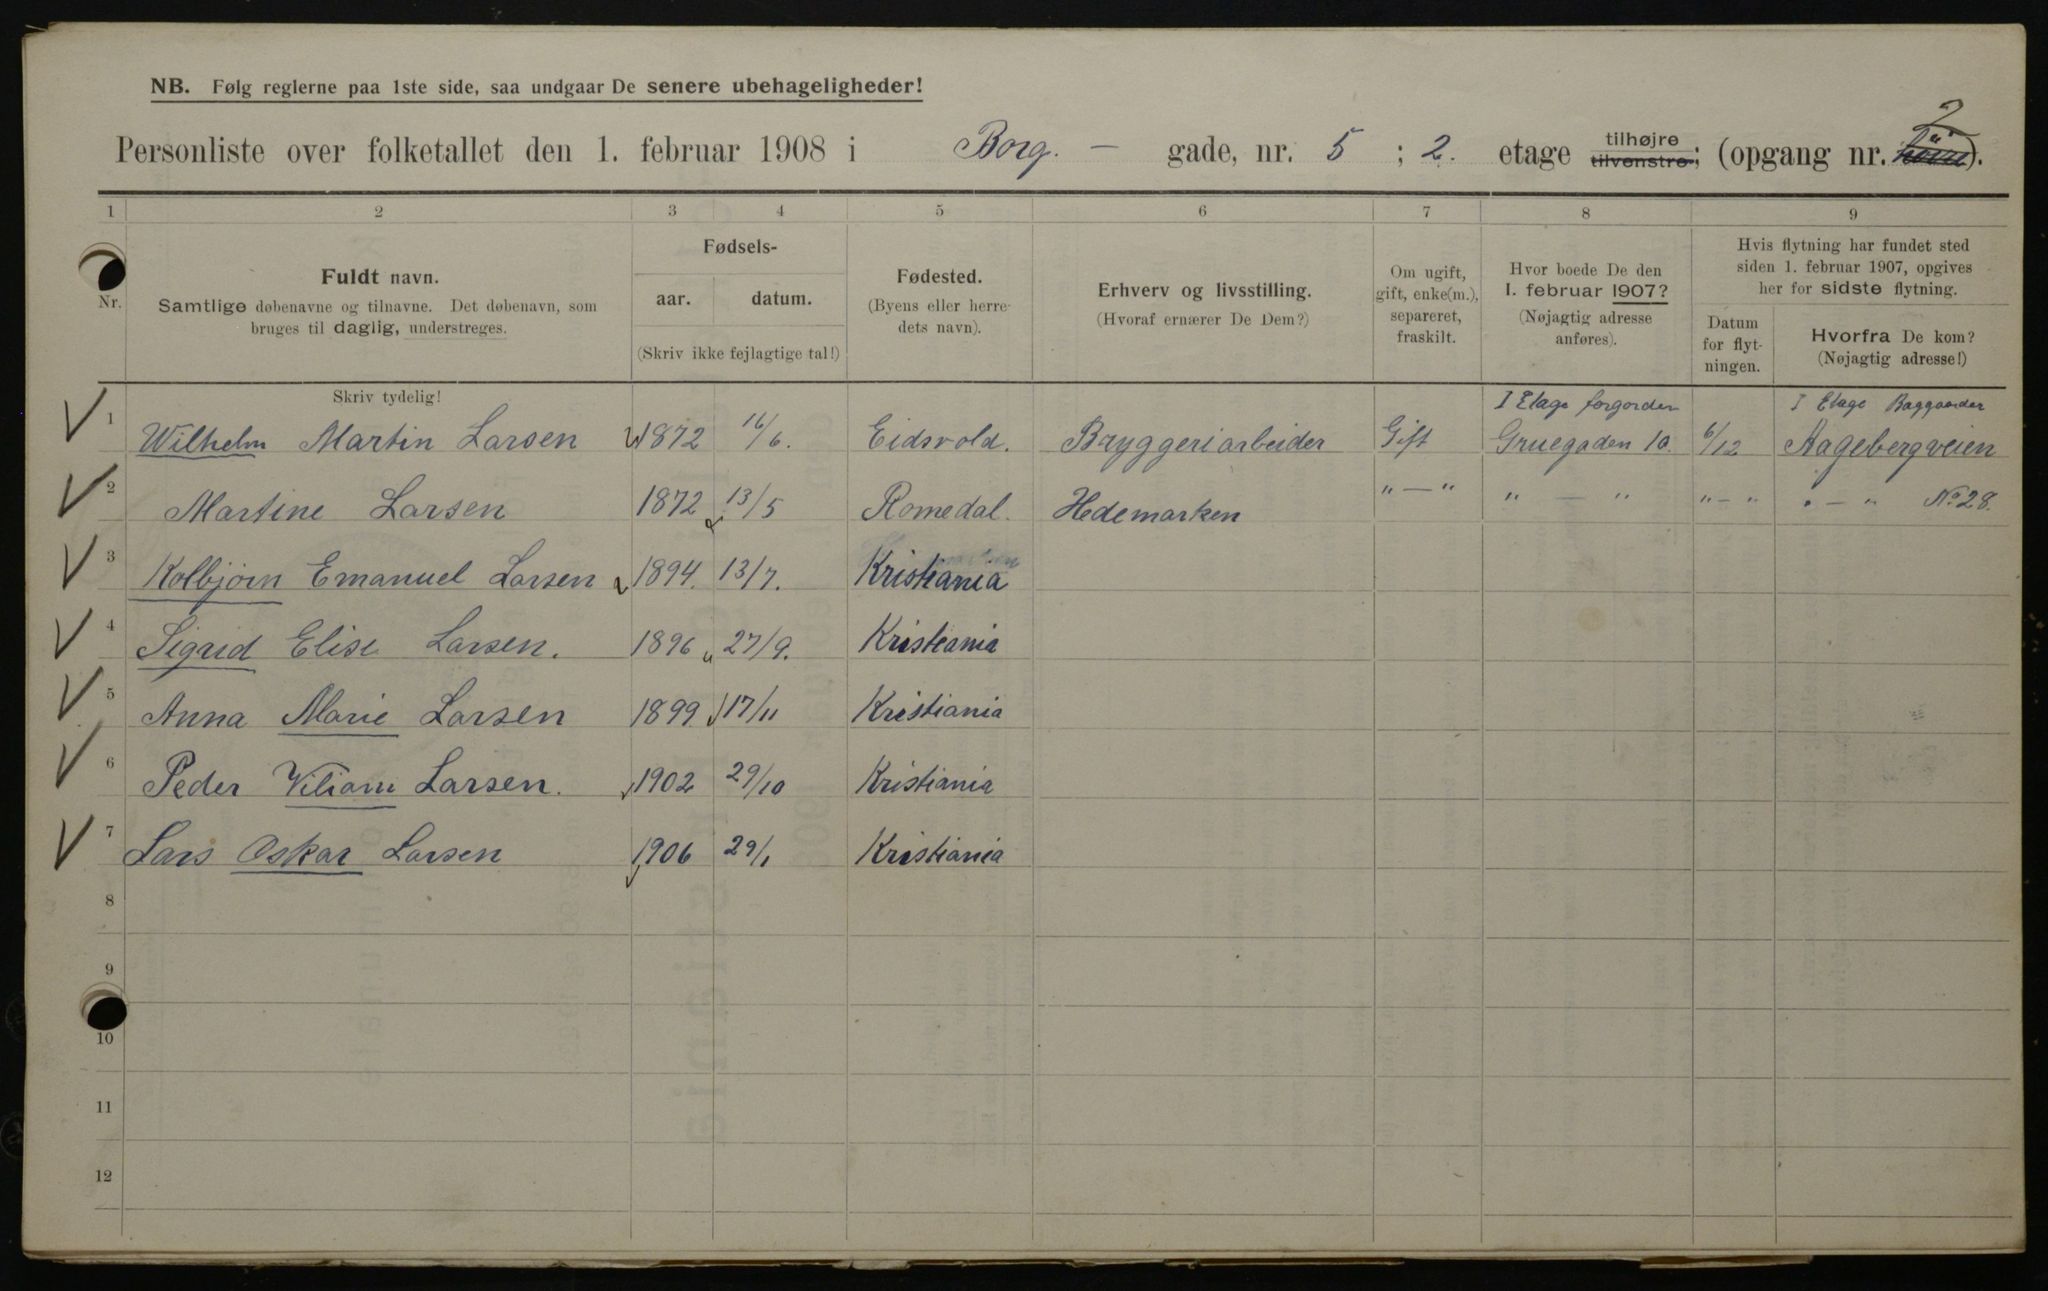 NB. Følg reglerne paa 1ste side, saa undgaar De senere ubehageligheder!
Personliste over folketallet den 1. februar 1908 i Borg. — gade, nr. 5 ; 2. etage tilhøjre tilvenstre; (opgang nr. 2).
1 2 3 4 5 6 7 8 9
Nr.
Fuldt navn.
Samtlige døbenavne og tilnavne. Det døbenavn, som
bruges til daglig, understreges.
Fødsels-
aar. datum.
(Skriv ikke fejlagtige tal!)
Fødested.
(Byens eller herre-
dets navn).
Erhverv og livsstilling.
(Hvoraf ernærer De Dem?)
Om ugift,
gift, enke(m.),
separeret,
fraskilt.
Hvor boede De den
1. februar 1907?
(Nøjagtig adresse
anføres).
Hvis flytning har fundet sted
siden 1. februar 1907, opgives
her for sidste flytning.
Datum
for flyt-
ningen.
Hvorfra De kom?
(Nøjagtig adresse!)
Skriv tydelig!
I Etage forgorden I Etage Baggaarden
1 Wilhelm Martin Larsen 1872 16/6. Eidsvold. Bryggeriarbeider Gift Gruegaden 10. 6/12 Aagebergveien
2 Martine Larsen 1872 13/5 Romedal. Hedemarken " — " " — " " — " " — " No 28.
3 Kolbjørn Emanuel Larsen 1894. 13/7. Kristiania
4 Sigrid Elise Larsen. 1896 27/9. Kristiania
5 Anna Marie Larsen 1899 17/11 Kristiania
6 Peder Viliam Larsen. 1902 29/10 Kristiania
7 Lars Oskar Larsen 1906 29/1 Kristiania
8
9
10
11
12